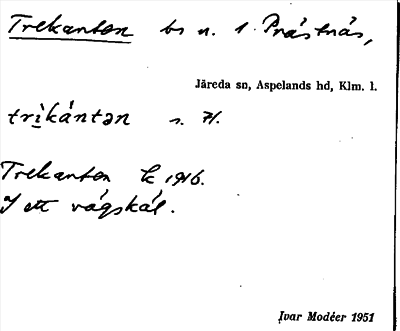 Trekanten bs n. 1. Prästnäs,
Järeda sn, Aspelands hd, Klm. l.
trìkántən s. H.
Trekanten k 1916.
I ett vägskäl.
Ivar Modéer 1951